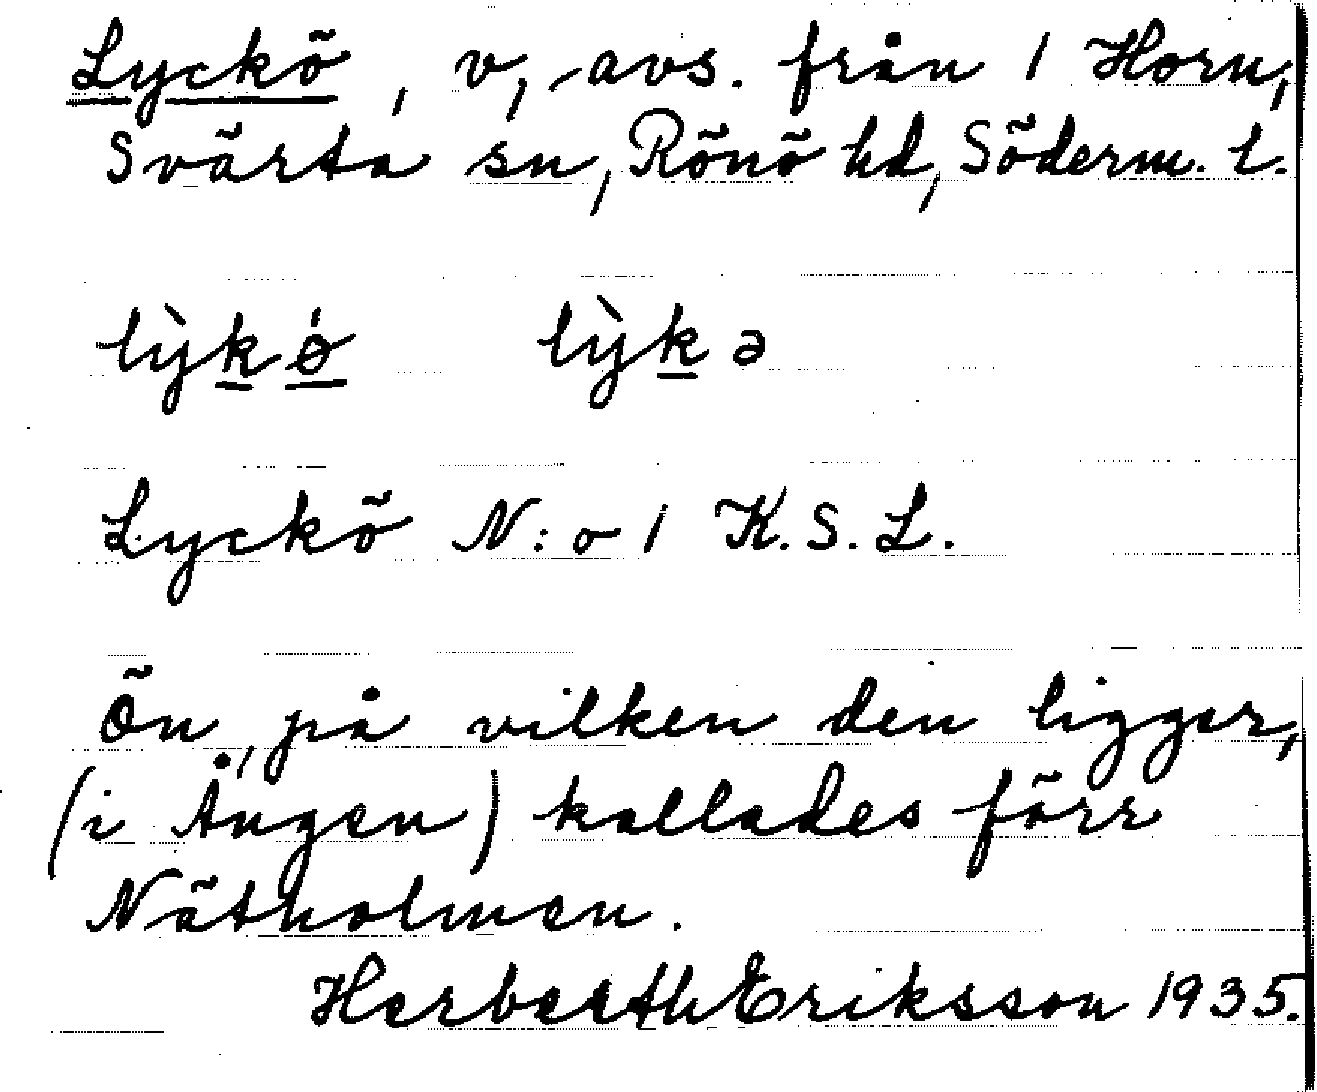 Lyckö, v, avs. från 1 Horn,
Svärta sn, Rönö hd, Söderm. l.
lỳkø̍ lỳkə
Lyckö N:o 1 K.S.L.
Ön, på vilken den ligger,
(i Ången) kallades förr
Nätholmen.
Herbert Eriksson 1935.